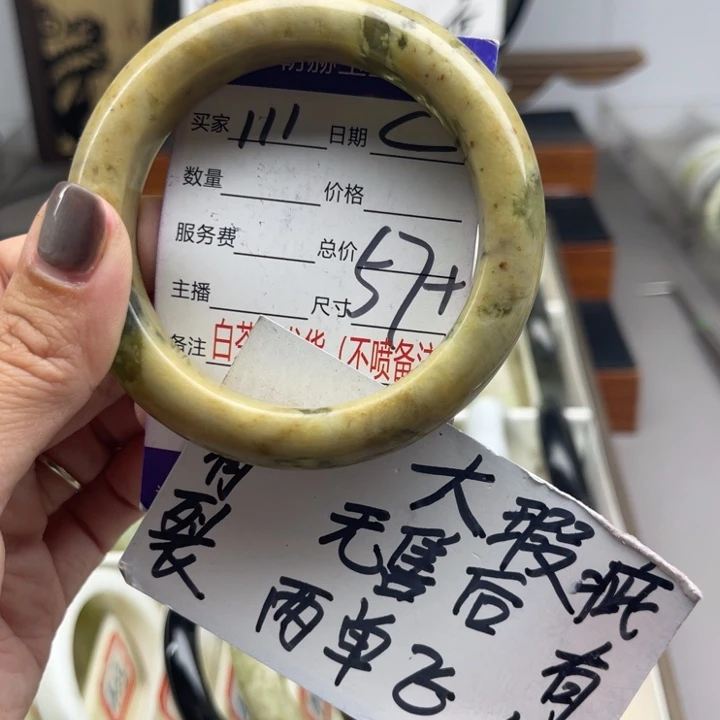 买家 111 日期 C
数量 价格
服务费 总价
主播 尺寸 57+
备注 白茶 (不喷备注
有裂
大瑕疵 有
无售后
两单飞